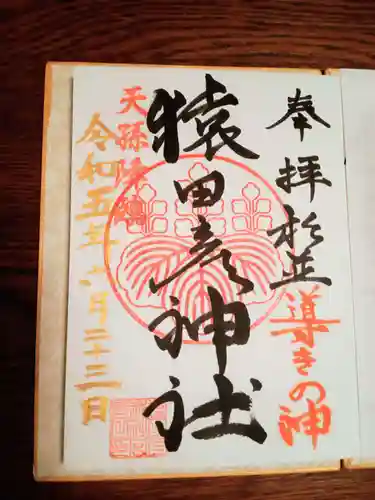 奉拝 杉並
導きの神
猿田彦神社
天孫降臨
令和五年八月二十三日